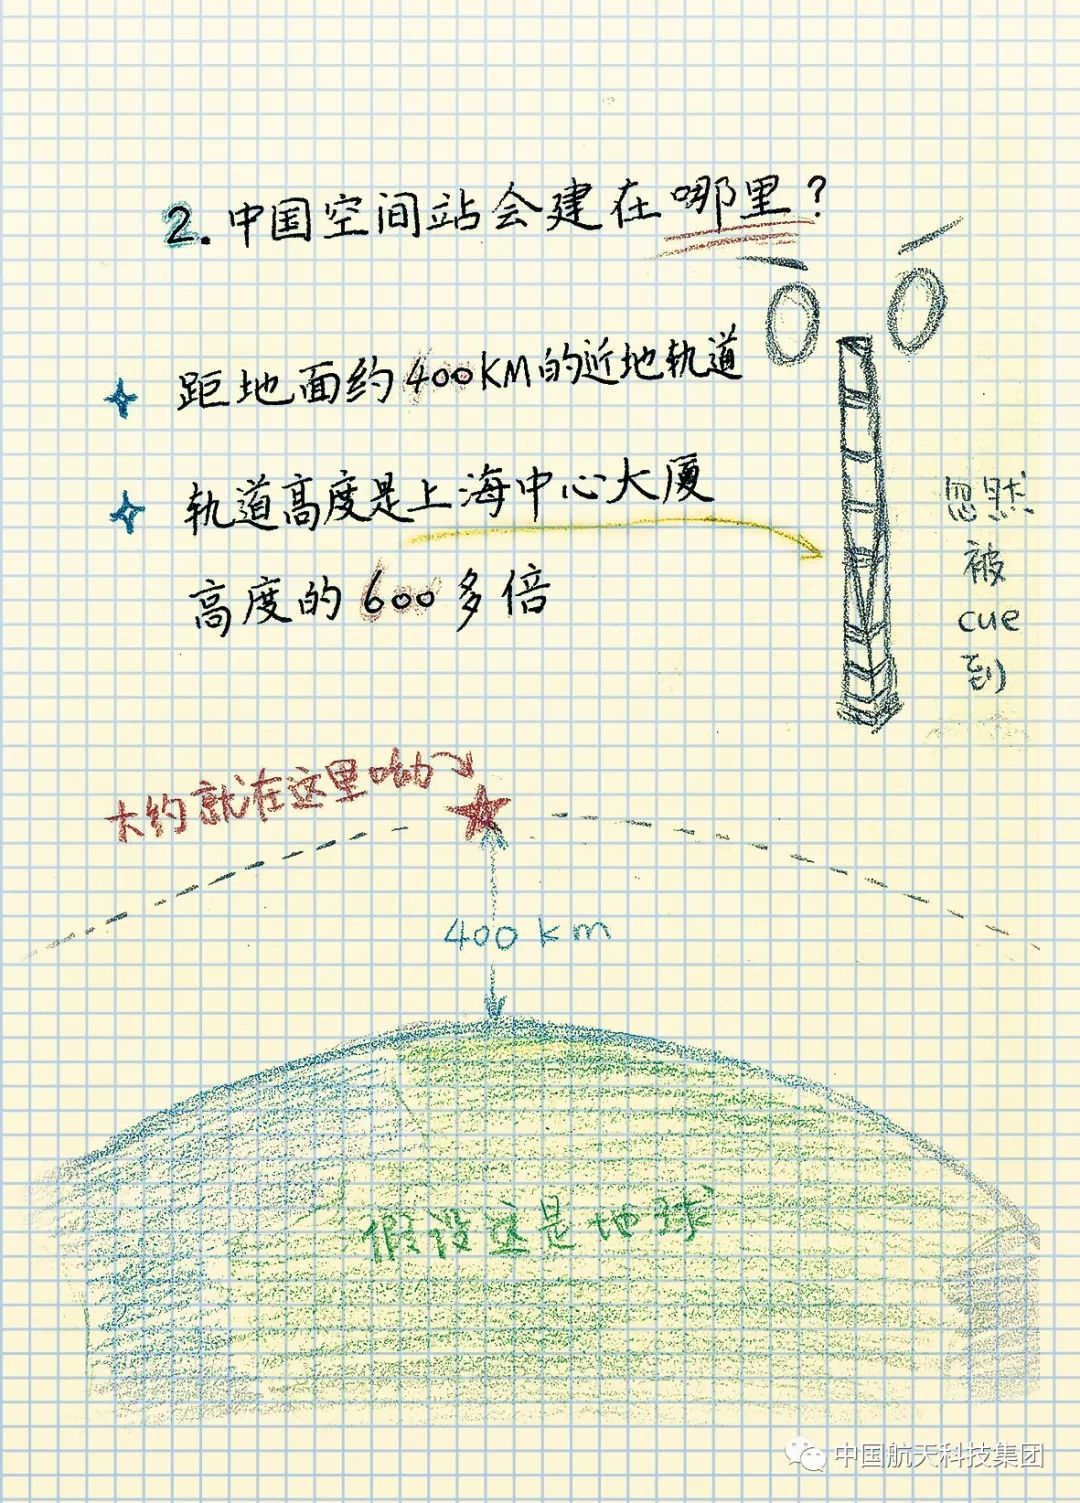 2.中国空间站会建在哪里?
距地面约400KM的近地轨道
轨道高度是上海中心大厦
高度的600多倍
忽然
被
cue
到
大约就在这里呦
400km
假设这是地球
中国航天科技集团